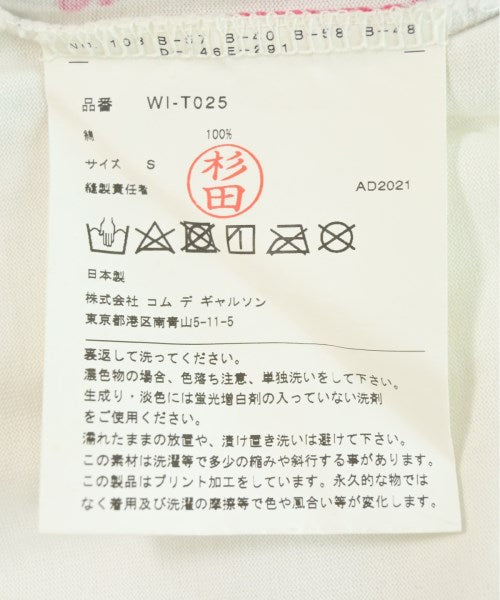 品番 WI-T025
綿 100%
サイズ S
杉田
縫製責任者
AD2021
日本製
株式会社 コム デ ギャルソン
東京都港区南青山5-11-5
裏返して洗ってください。
濃色物の場合、色落ち注意、単独洗いをして下さい。
生成り・淡色には蛍光増白剤の入っていない洗剤
をご使用ください。
濡れたままの放置や、漬け置き洗いは避けて下さい。
この素材は洗濯等で多少の縮みや斜行する事があります。
この製品はプリント加工をしています。永久的な物では
なく着用及び洗濯の摩擦等で色や風合い等が変化します。